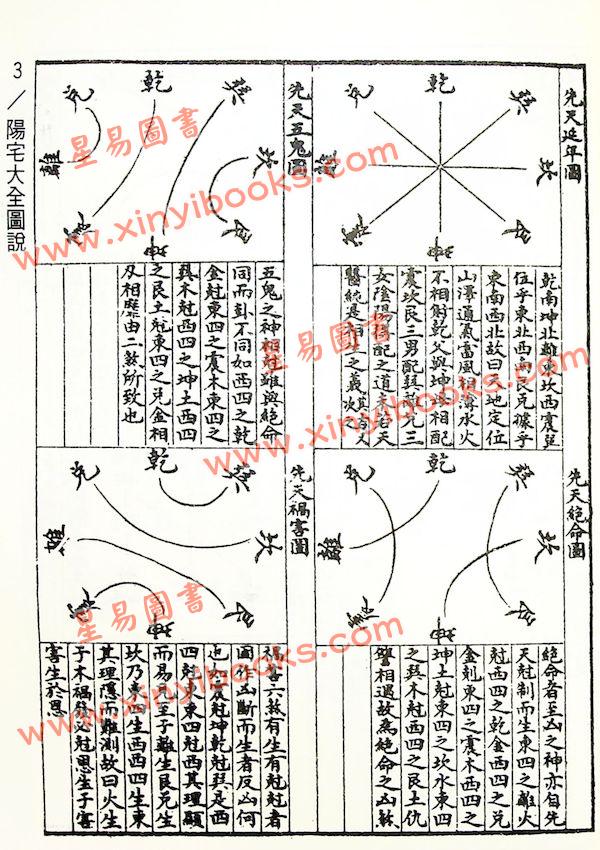 3/陽宅大全圖說
先天延年圖
兌 乾 巽
離 坎
震 坤 艮
乾南坤北離東坎西震巽
位乎東北西南艮兌據乎
東南西北故曰天地定位
山澤通氣雷風相薄水火
不相射乾父與坤母相配
震坎艮三男配巽離兌三
女陰陽得配之道夫天
醫純是相生之義其吉又
先天五鬼圖
兌 乾 巽
離 坎
震 坤 艮
五鬼之神相尅雖與絕命
同而卦不同如西四之乾
金尅東四之震木東四之
巽木尅西四之坤土西四
之艮土尅東四之兌金相
及相由二數所致也
先天絕命圖
兌 乾 巽
離 坎
震 坤 艮
絕命者至凶之神亦自先
天尅制而生東四之離火
尅西四之乾金西四之兌
金剋東四之震木西四之
坤土尅東四之坎水東四
之巽木尅西四之艮土仇
讐相遇故為絕命之凶煞
先天禍害圖
兌 乾 巽
離 坎
震 坤 艮
禍害六煞有生有尅尅者
固作凶斷而生者反凶何
也如震尅坤乾尅巽是西
四尅東東四尅西其理顯
而易見至于離生艮兌生
坎乃東四生西西四生東
其理隱而難測故曰火生
于木禍發必尅恩生于害
害生於恩
星易圖書
www.xinyibooks.com
星易圖書
www.xinyibooks.com
星易圖書
www.xinyibooks.com